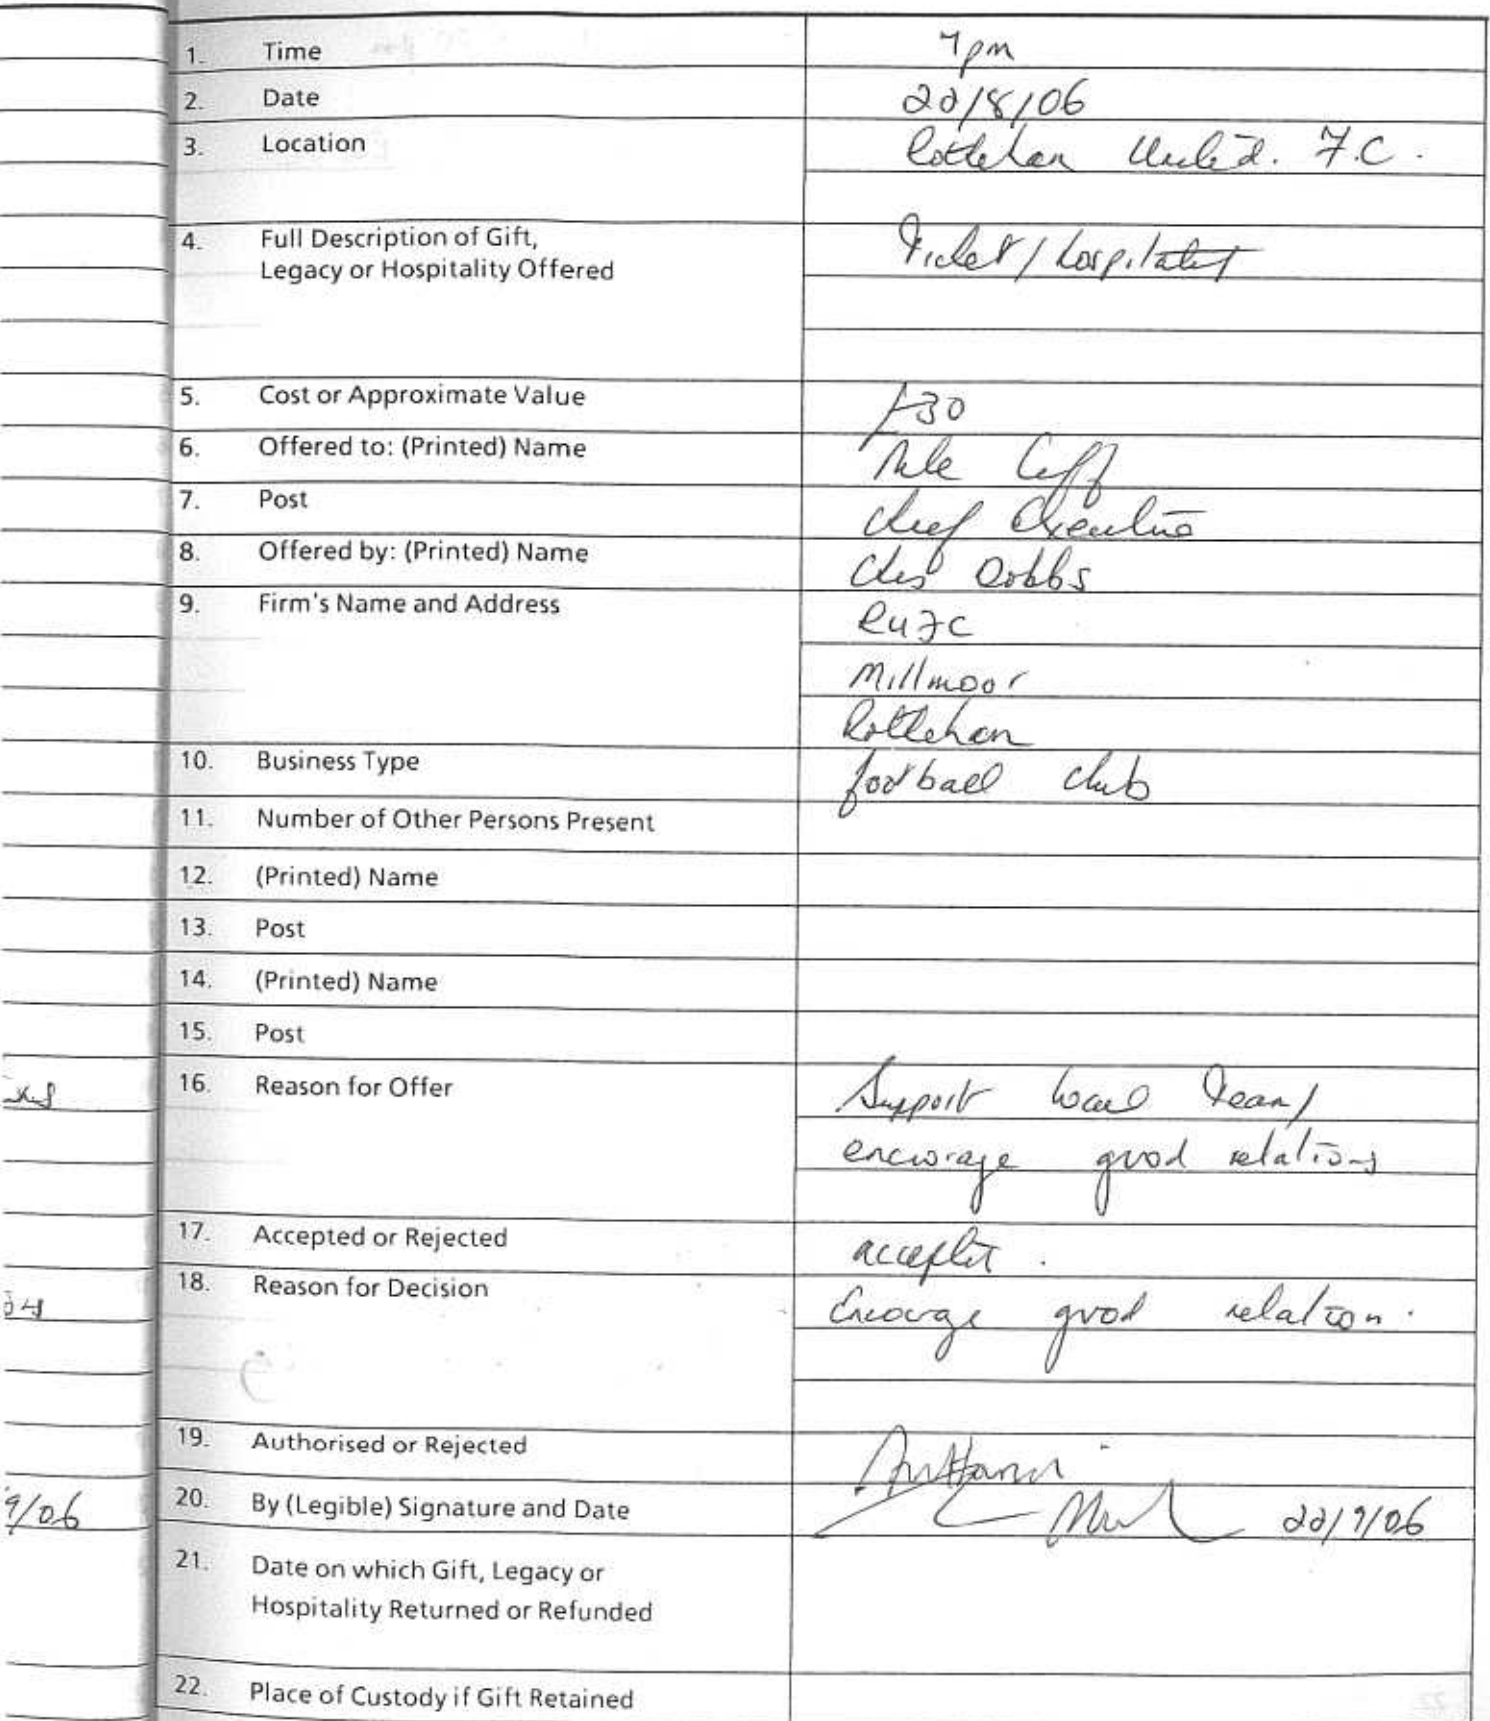 1. Time 7pm
2. Date 22/8/06
3. Location Rotherham United. F.C.
4. Full Description of Gift,
Legacy or Hospitality Offered Ticket / hospitality
5. Cost or Approximate Value £30
6. Offered to: (Printed) Name
7. Post Chief Executive
8. Offered by: (Printed) Name Dobbs
9. Firm's Name and Address RUFC
Millmoor
Rotherham
10. Business Type football club
11. Number of Other Persons Present
12. (Printed) Name
13. Post
14. (Printed) Name
15. Post
16. Reason for Offer Support local team/
encorage good relations
17. Accepted or Rejected accepted.
18. Reason for Decision Encourage good relation.
19. Authorised or Rejected
20. By (Legible) Signature and Date 22/9/06
9/06
21. Date on which Gift, Legacy or
Hospitality Returned or Refunded
22. Place of Custody if Gift Retained